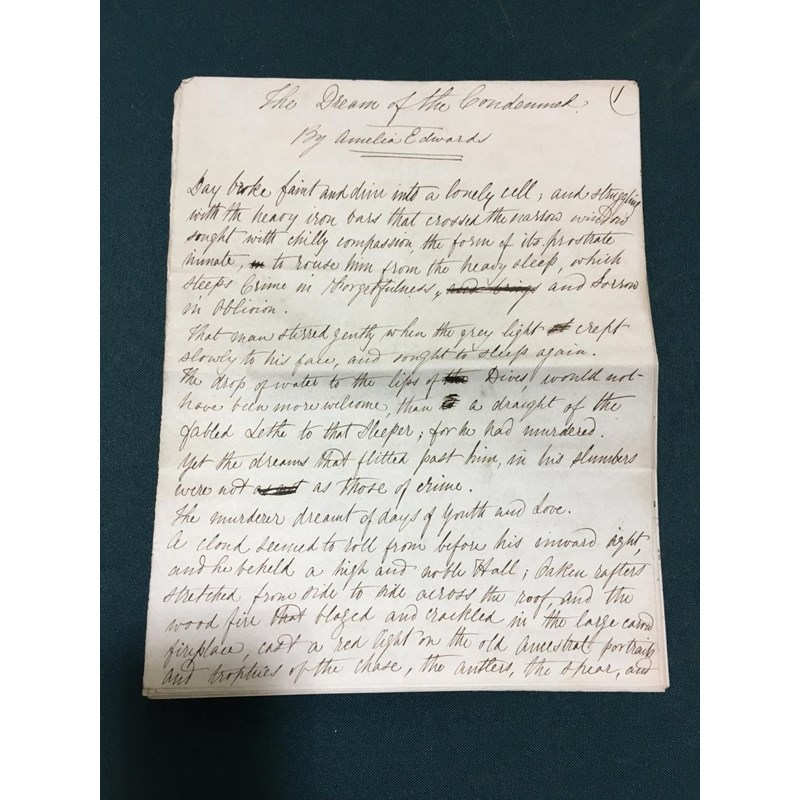 The Dream of the Condemned.
1
By Amelia Edwards
Day broke faint and dim into a lonely cell; and struggling
with the heavy iron bars that crossed the narrow window
sought with chilly compassion, the form of its prostrate
inmate, to rouse him from the heavy sleep, which
steeps Crime in Forgetfulness, and brings and Sorrow
in Oblivion.
That man stirred gently when the grey light crept
slowly to his face, and sought to sleep again.
The drop of water to the lips of the Dives would not
have been more welcome, than a draight of the
fabled Lethe to that Sleeper; for he had murdered.
Yet the dreams that flitted past him, in his slumbers
were not as those of crime.
The murderer dreamt of days of Youth and Love.
A cloud seemed to roll from before his inward sight,
and he beheld a high and noble Hall; Oaken rafters
stretched from side to side across the roof, and the
wood fire that blazed and crackled in the large carved
fireplace, cast a red light on the old ancestral portraits
and trophies of the chase, the antlers, the spear, and